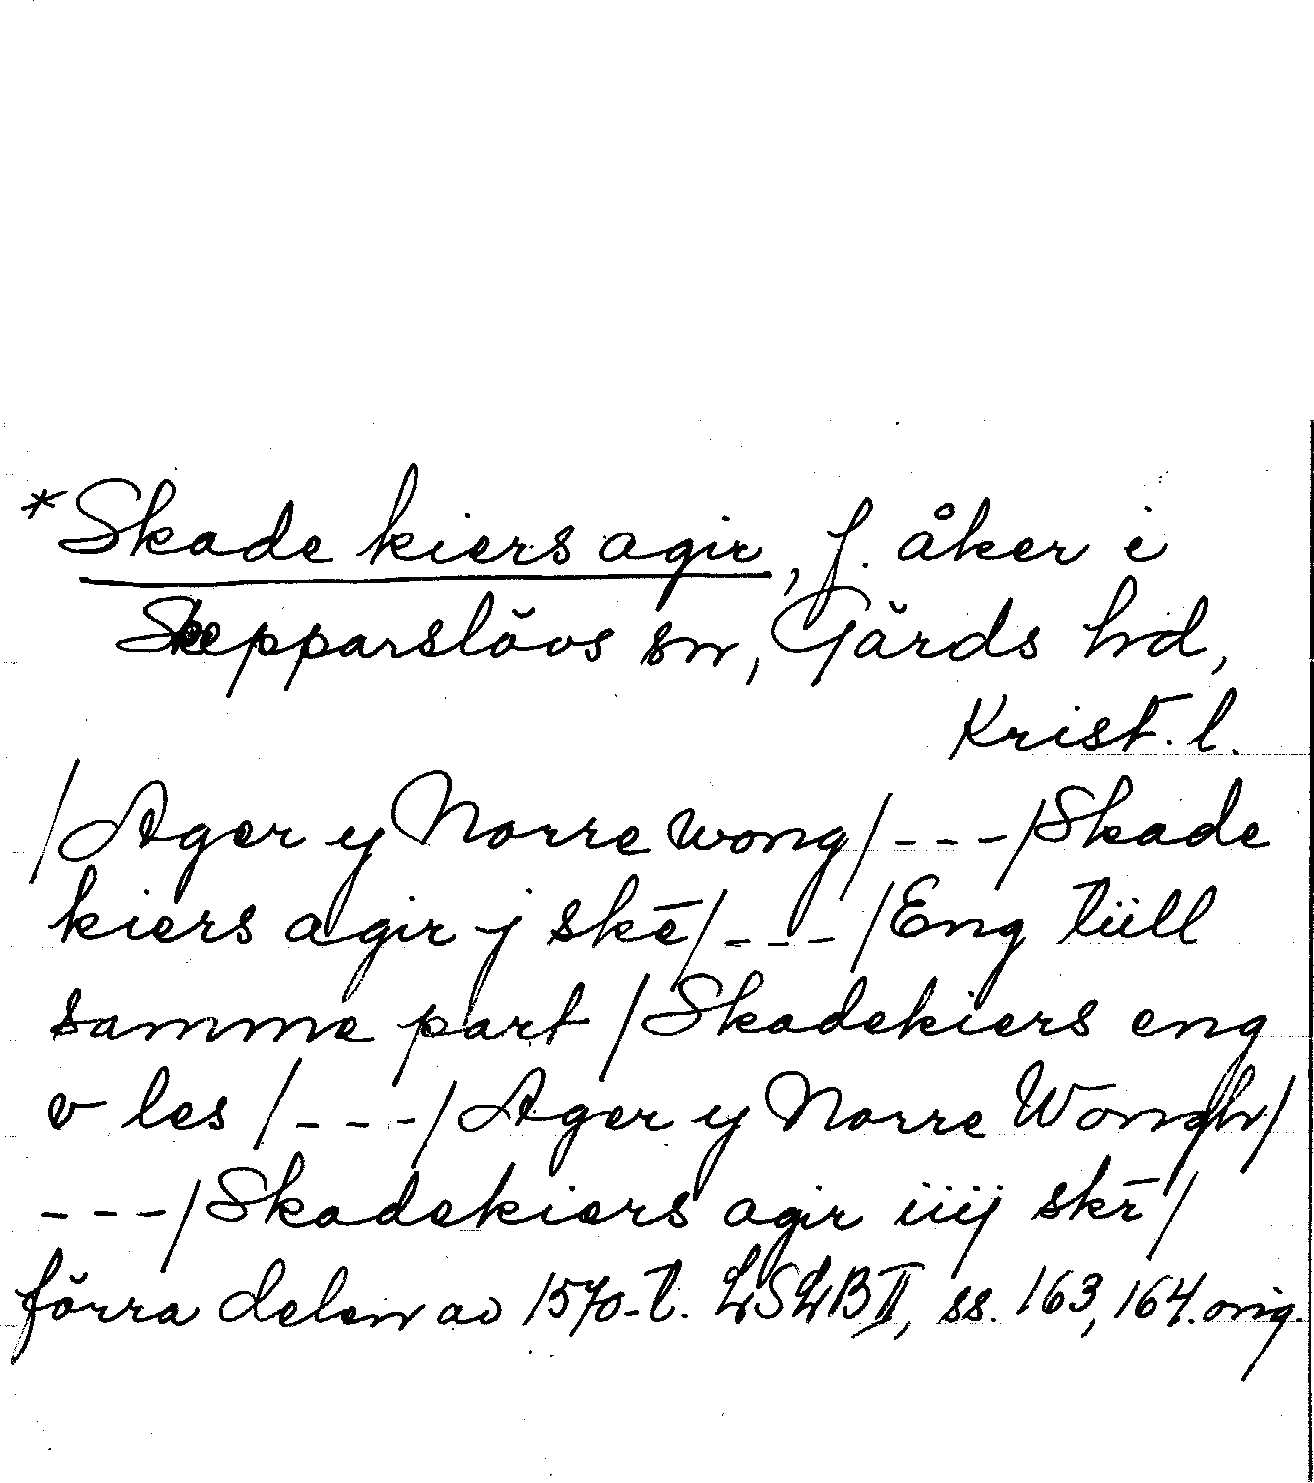 *Skade kiers agir, f. åker i
Skepparslövs sn, Gärds hd,
Krist. l.
/Ager y Norre wong/---/Skade
kiers agir j skē/---/Eng tiill
samme part/Skadekiers eng
v les/---/Ager y Norre Wongh/
---/Skadekiers agir iiij skr̄/
förra delen av 1570-t. LSLB II, ss. 163, 164. orig.